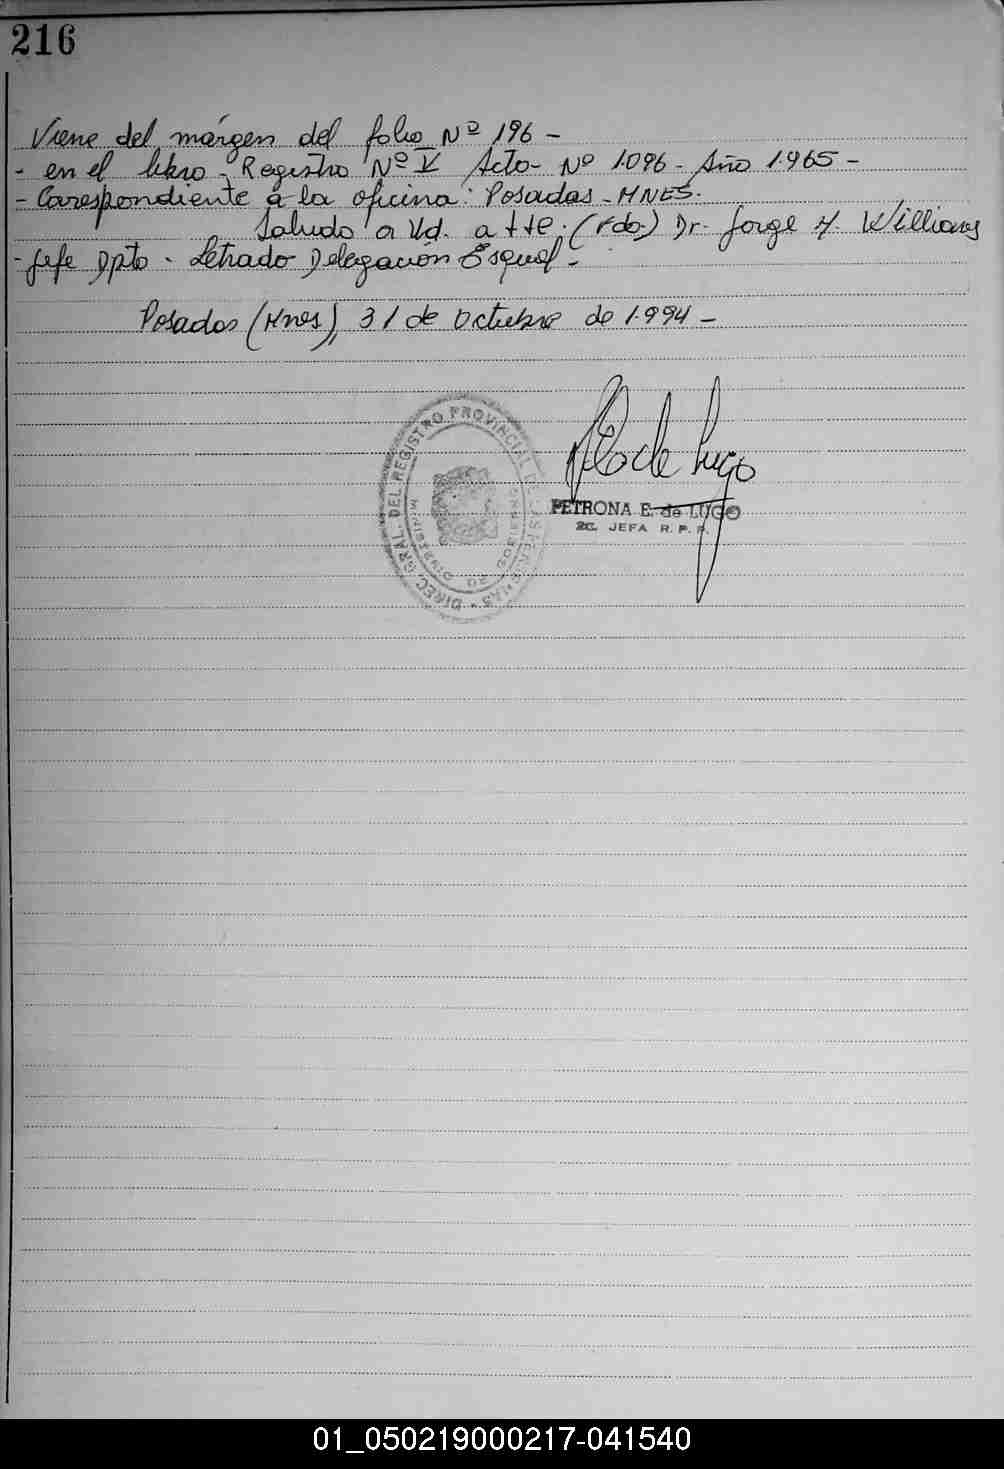 216
Viene del márgen del folio Nº 196 -
- en el libro - Registro Nº V Acto - Nº 1096 - Año 1.965 -
- Corespondiente a la oficina: Posadas - MNES.
Saludo a Ud. a tte. (fdo.) Dr. Jorge H. Williams
- Jefe Dpto - Letrado Delegación Esquel -
Posadas (Mnes), 31 de Octubre de 1.994 -
DIREC. GRAL. DEL REGISTRO PROVINCIAL DE LAS PERSONAS
MISIONES
de Lugo
PETRONA E. de LUGO
2a. JEFA R. P. P.
01_050219000217-041540